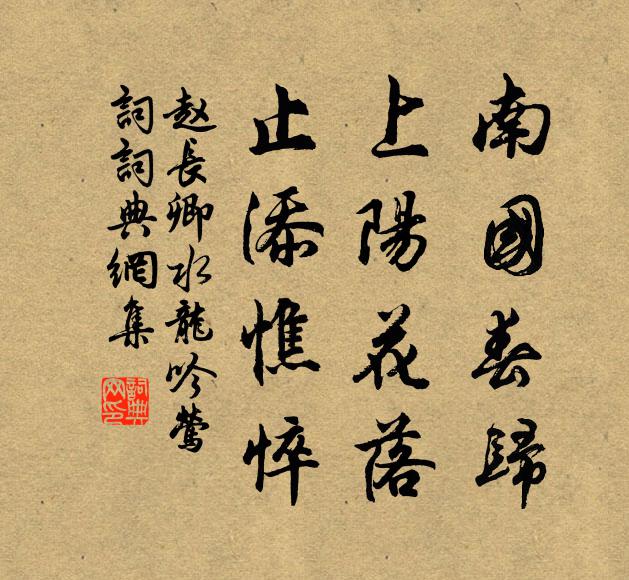 南國春歸
上陽花落
止添憔悴
赵長卿水龍吟鶯
詞詞典網集
詞典网印